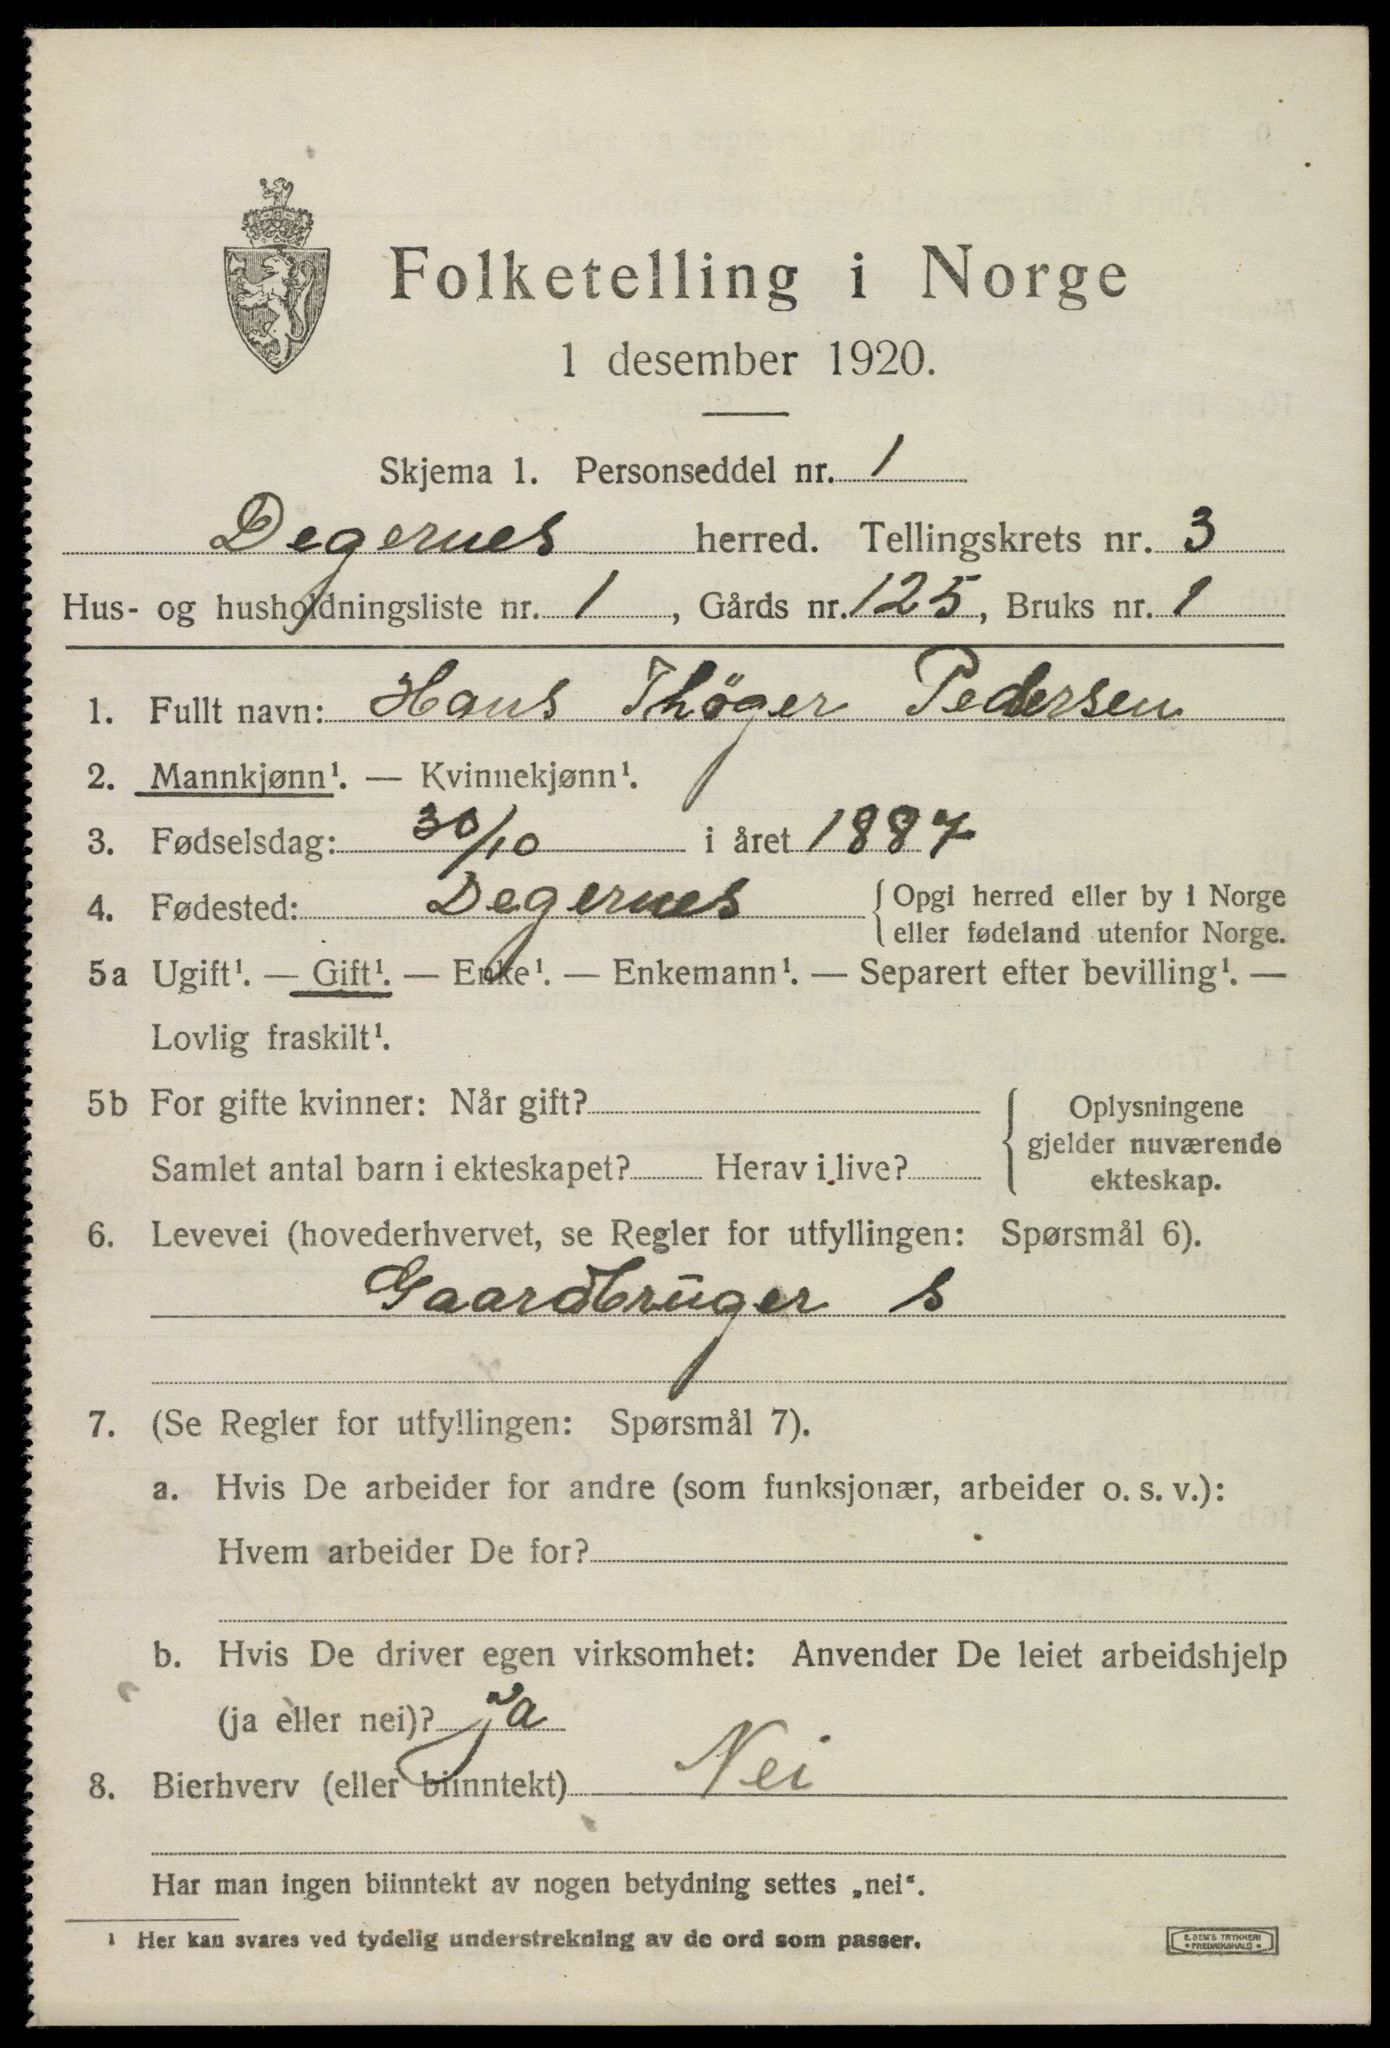 Folketelling i Norge
1 desember 1920.
Skjema 1. Personseddel nr. 1
Degernes herred. Tellingskrets nr. 3
Hus- og husholdningsliste nr. 1, Gårds nr. 125, Bruks nr. 1
1. Fullt navn: Hans Thöger Pedersen
2. Mannkjønn¹. — Kvinnekjønn¹.
3. Fødselsdag: 30/10 i året 1887
4. Fødested: Degernes {Opgi herred eller by i Norge
eller fødeland utenfor Norge.
5a Ugift¹. — Gift¹. — Enke¹. — Enkemann¹. — Separert efter bevilling¹. —
Lovlig fraskilt¹.
5b For gifte kvinner: Når gift? Oplysningene
gjelder nuværende
Samlet antal barn i ekteskapet? Herav i live? ekteskap.
6. Levevei (hovederhvervet, se Regler for utfyllingen: Spørsmål 6).
Gaardbruger s
7. (Se Regler for utfyllingen: Spørsmål 7).
a. Hvis De arbeider for andre (som funksjonær, arbeider o. s. v.):
Hvem arbeider De for?
b. Hvis De driver egen virksomhet: Anvender De leiet arbeidshjelp
(ja eller nei)? ja
8. Bierhverv (eller biinntekt) Nei
Har man ingen biinntekt av nogen betydning settes „nei“.
¹ Her kan svares ved tydelig understrekning av de ord som passer.
E. SEM'S TRYKKERI
FREDRIKSHALD